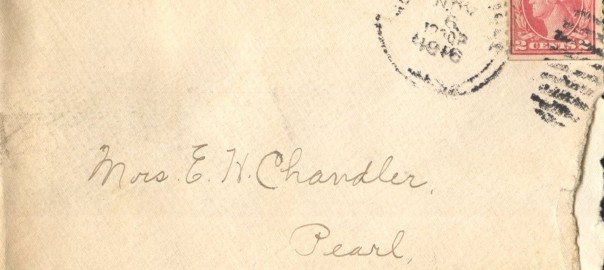 6
2 CENTS 2
Mrs. E. H. Chandler,
Pearl,